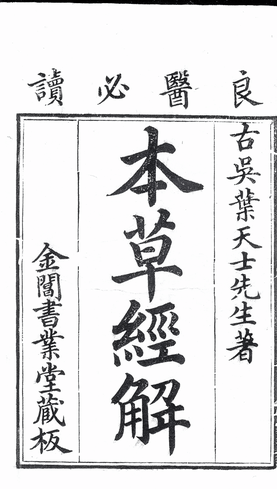 良醫必讀
古吳葉天士先生著
本草經解
金閶書業堂藏板